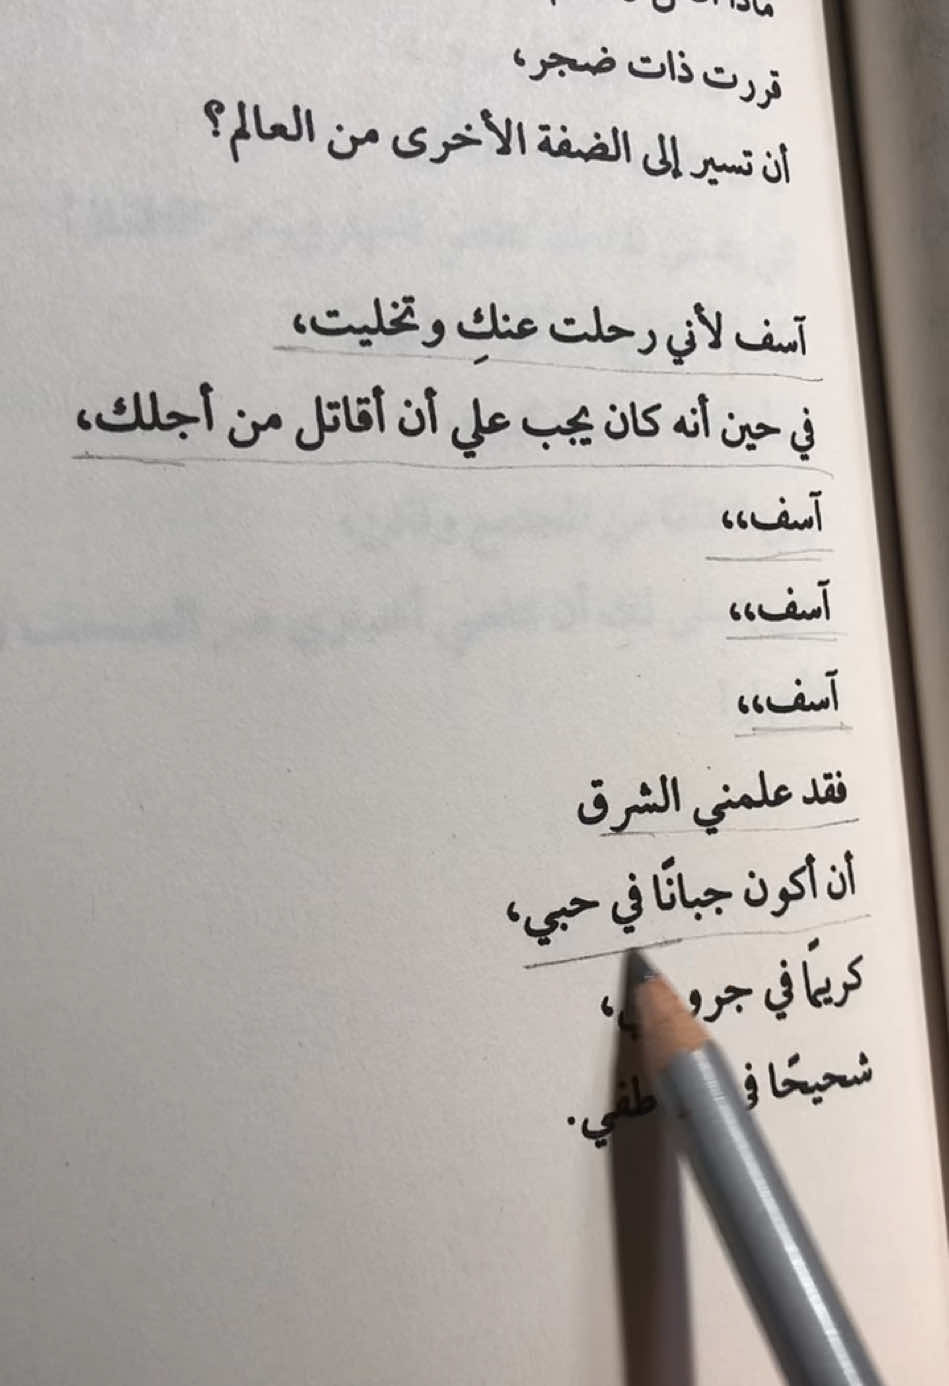 قررت ذات ضجر،
أن تسير إلى الضفة الأخرى من العالم؟
آسف لأني رحلت عنكِ وتخليت،
في حين أنه كان يجب علي أن أقاتل من أجلك،
آسف،،
آسف،،
آسف،،
فقد علمني الشرق
أن أكون جبانًا في حبي،
كريمًا في
شحيحًا